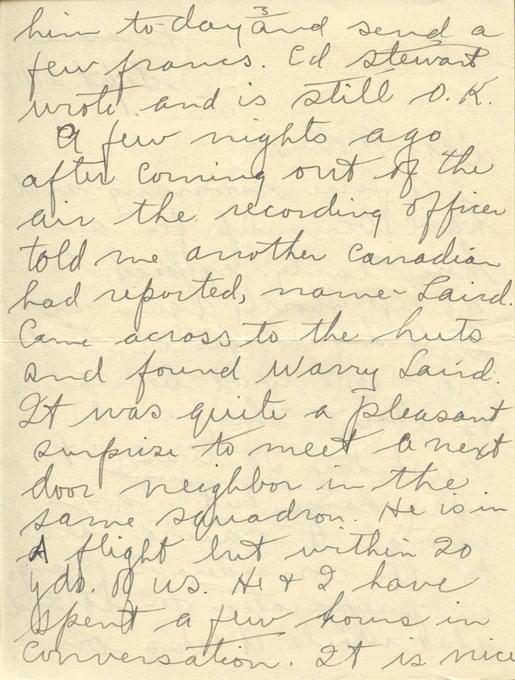 3
him to-day and send a
few francs. Ed Stewart
wrote and is still O.K.
A few nights ago
after coming out of the
air the recording officer
told me another Canadian
had reported, name - Laird.
Came across to the huts
and found Warry Laird.
It was quite a pleasant
surprise to meet a next
door neighbor in the
same squadron. He is in
A flight but within 20
yds. of us. He & I have
spent a few hours in
conversation. It is nice